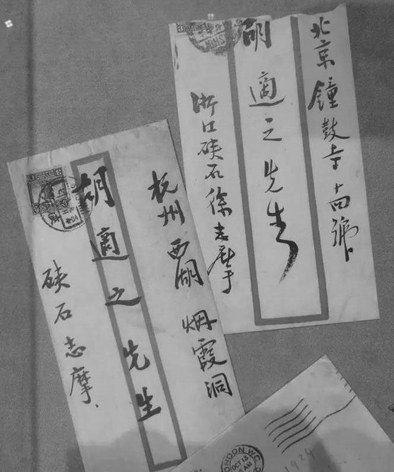 北京鐘鼓寺十四號
胡適之先生
浙江硤石徐志摩
杭州西湖烟霞洞
胡適之先生
硤石志摩
ONDON.W.C.
OCT